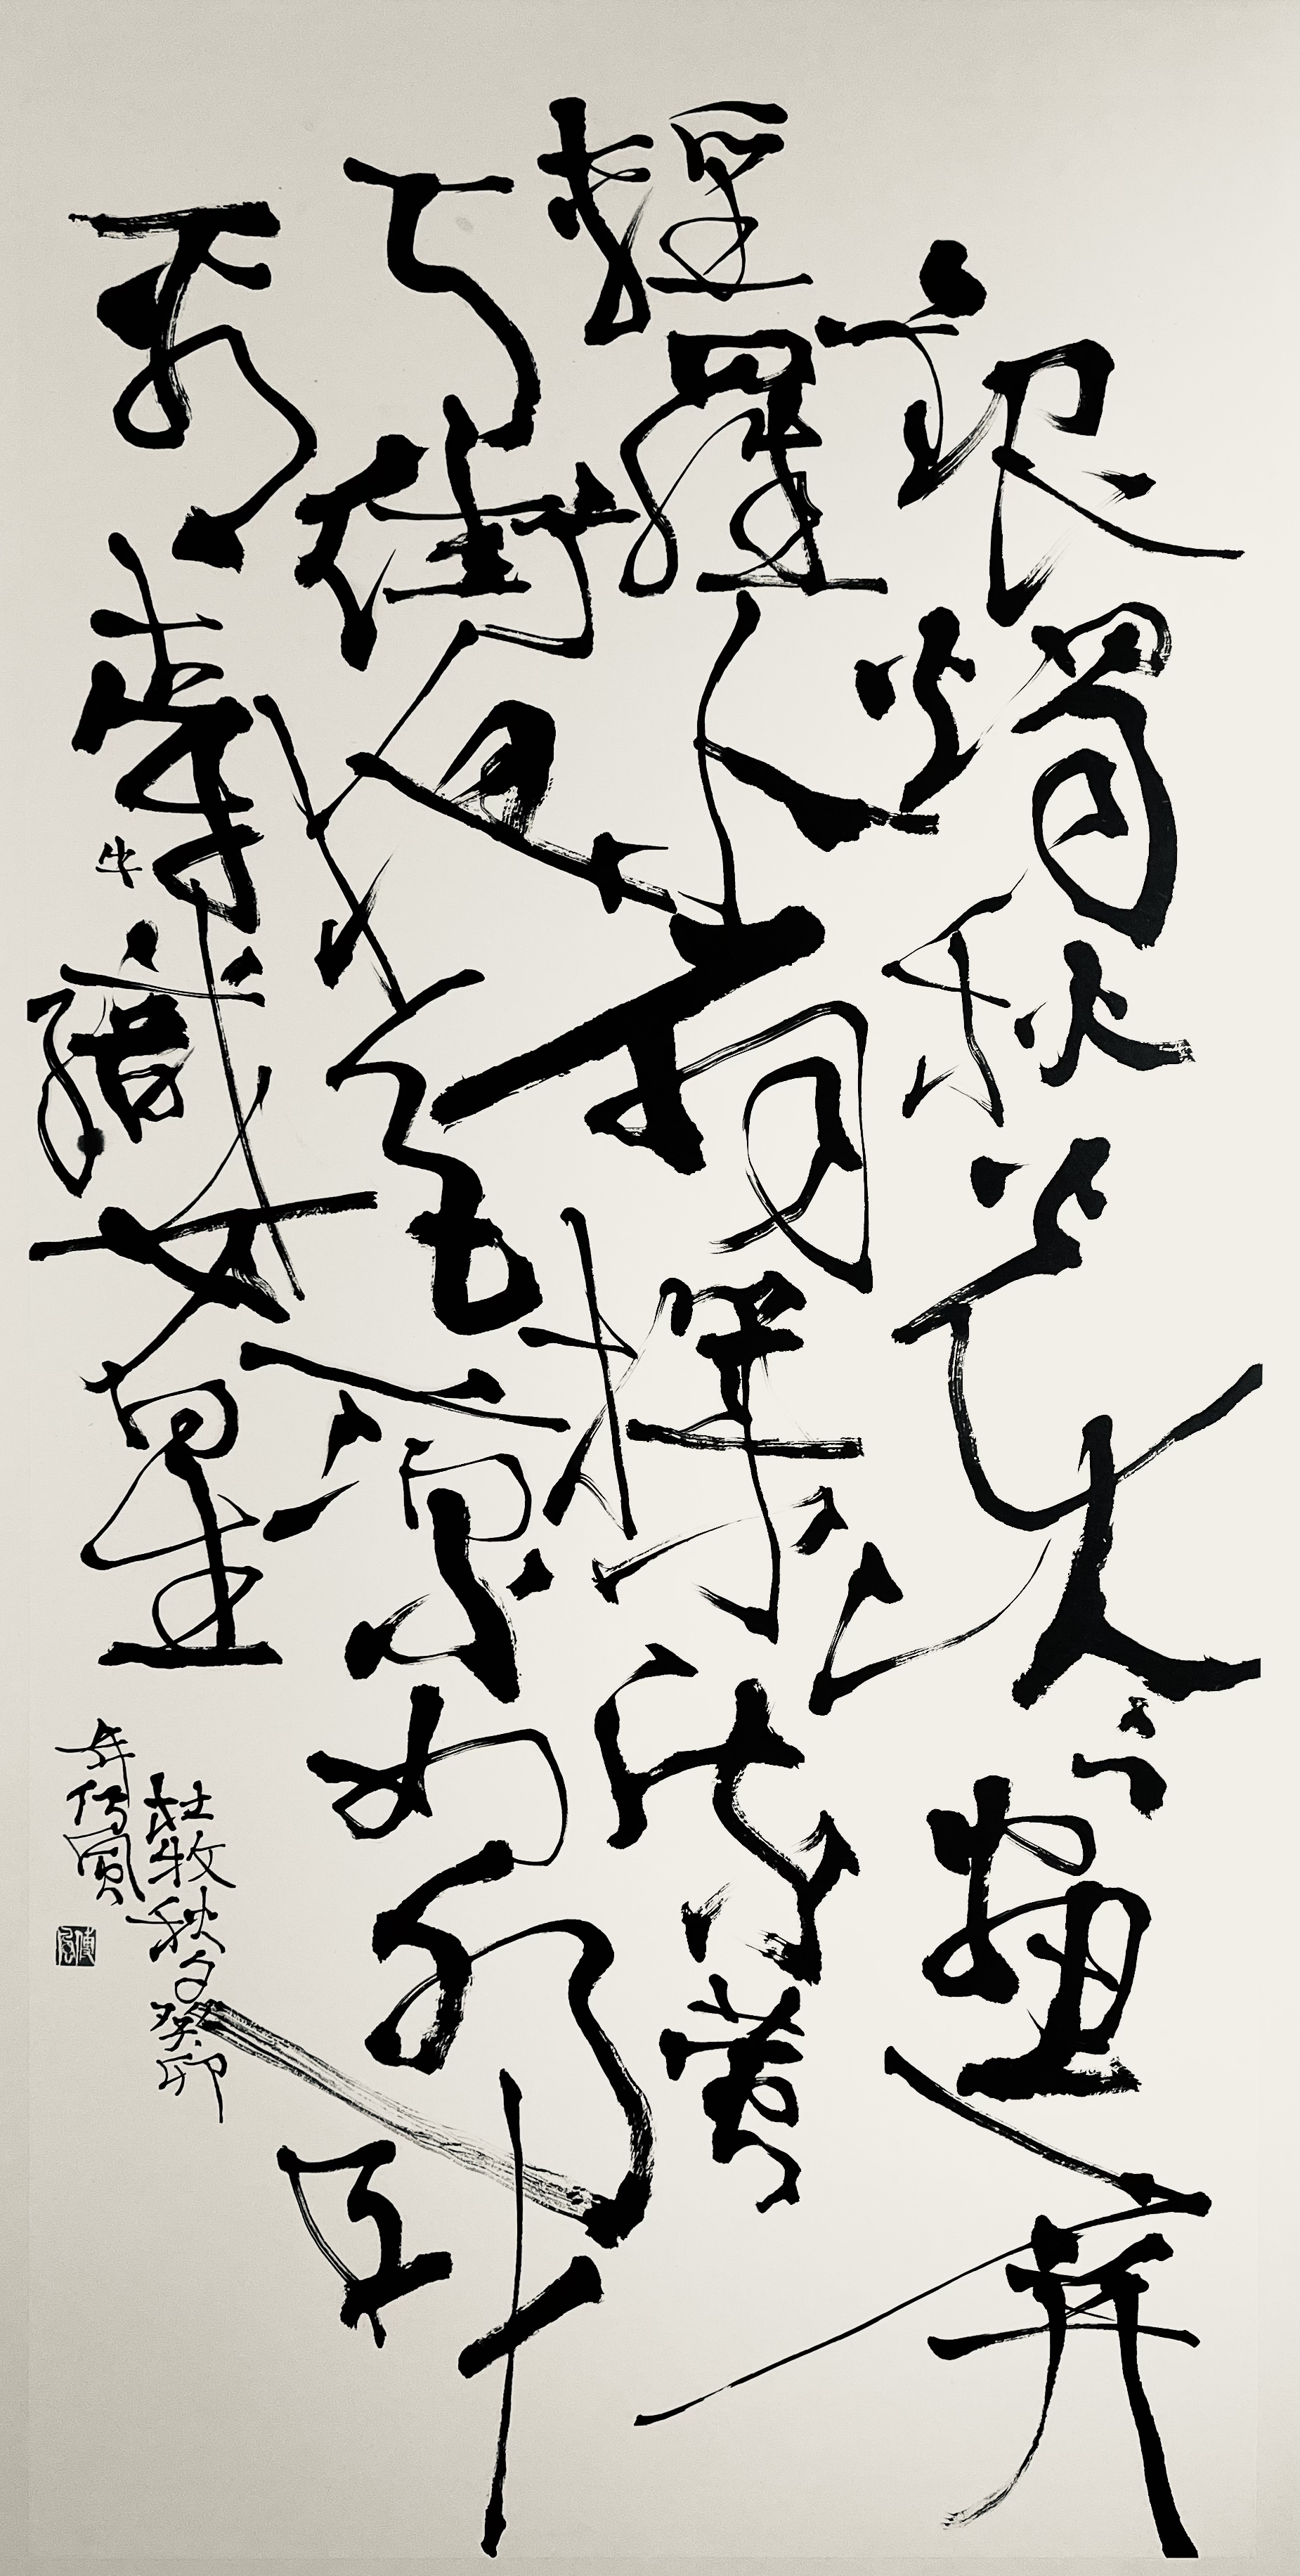 銀燭秋光冷畫屏
輕羅小扇撲流螢
天街夜色涼如水臥
看牽牛織女星
杜牧秋夕癸卯
年傳風